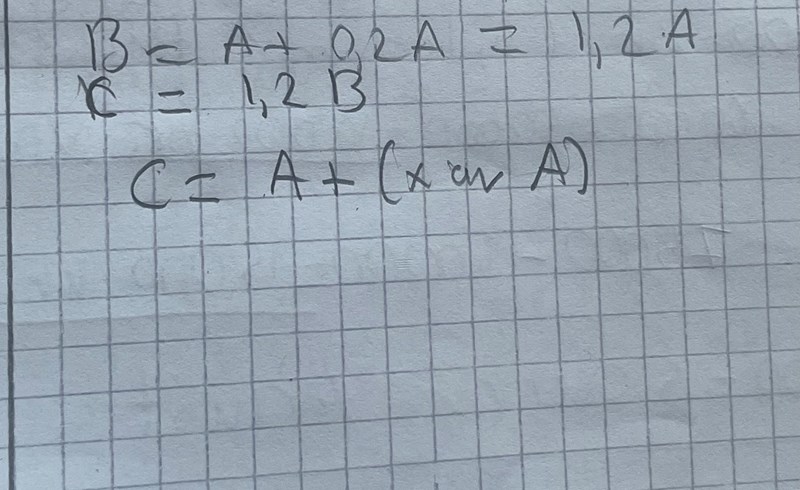 B = A + 0,2A = 1,2A
C = 1,2 B
C = A + (x av A)